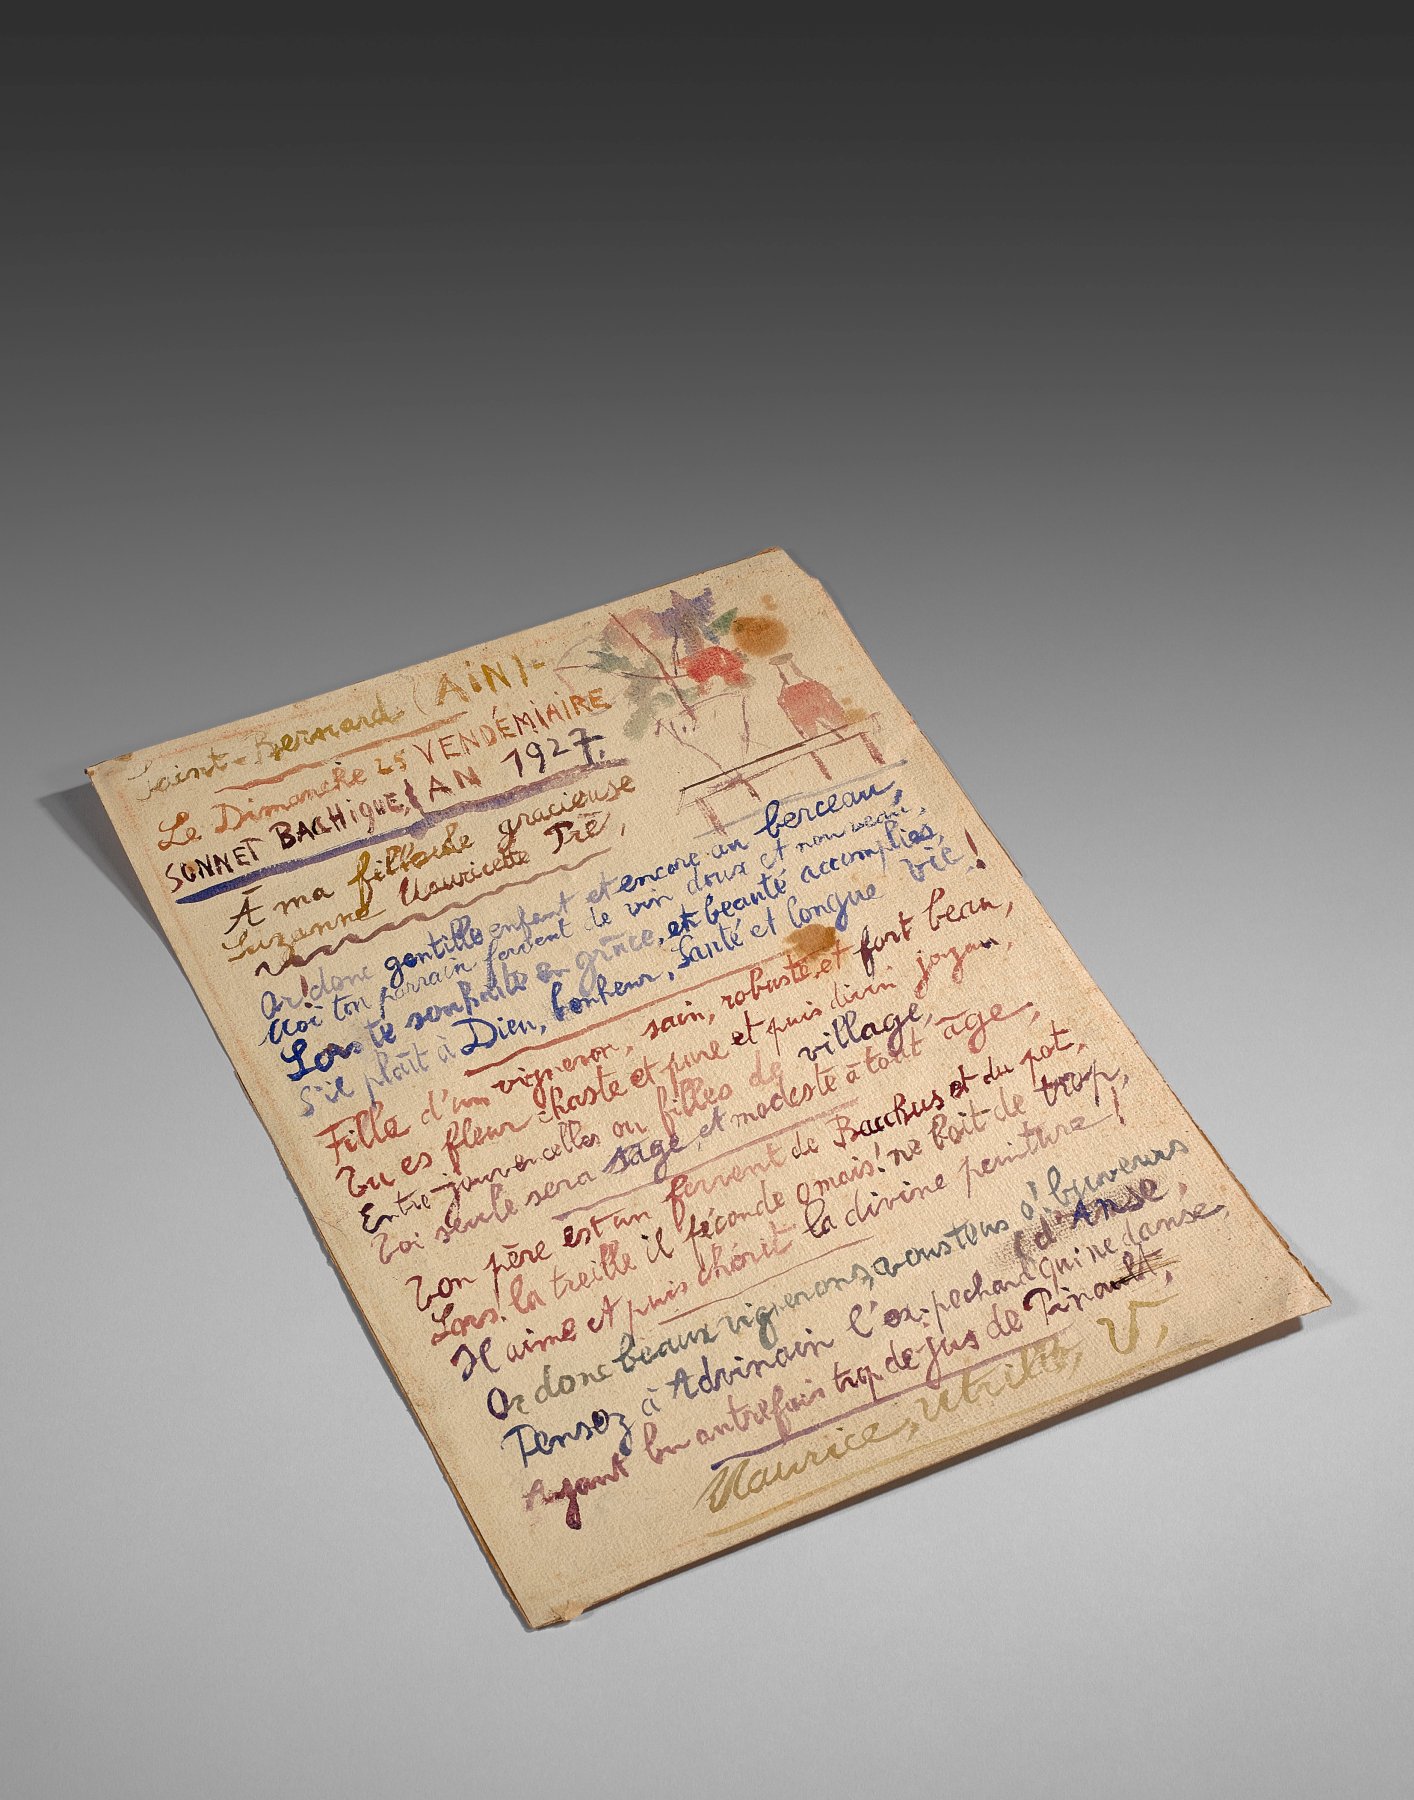 Saint-Bernard (AiN)-
Le Dimanche 25 VENDÉMIAIRE
SONNET BACHIQUE, (AN 1927.
À ma filleule gracieuse
Suzanne Mauricette Pré,
Or! donc gentille enfant et encore au berceau,
Moi ton parrain fervent de vin doux et nouveau,
Lors te souhaite en grâce, et beauté accomplies,
S'il plaît à Dieu, bonheur, santé et longue vie!
Fille d'un vigneron, sain, robuste, et fort beau,
Tu es fleur chaste et pure et puis divin joyau,
Entre jouvencelles ou filles de village,
Toi seule sera sage, et modeste à tout âge,
Ton père est un fervent de Bacchus et du pot,
Lors. la treille il féconde o mais! ne boit de trop,
Il aime et puis chérit la divine peinture!
Or donc beaux vignerons, vous tous ô! buveurs
(d'Anse,
Pensez à Advinain l'ex-pochard qui ne danse,
Ayant bu autrefois trop de jus de Pinault,
Maurice, Utrillo, V,